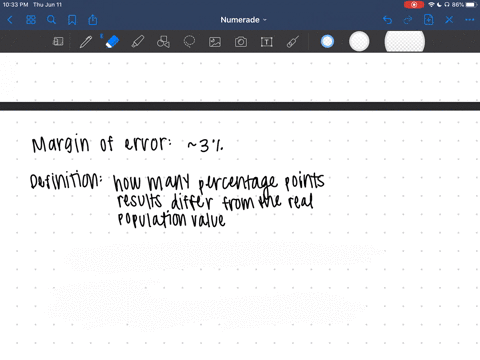 10:33 PM Thu Jun 11
86%
Numerade
Margin of error: ~3%
Definition: how many percentage points
results differ from the real
population value